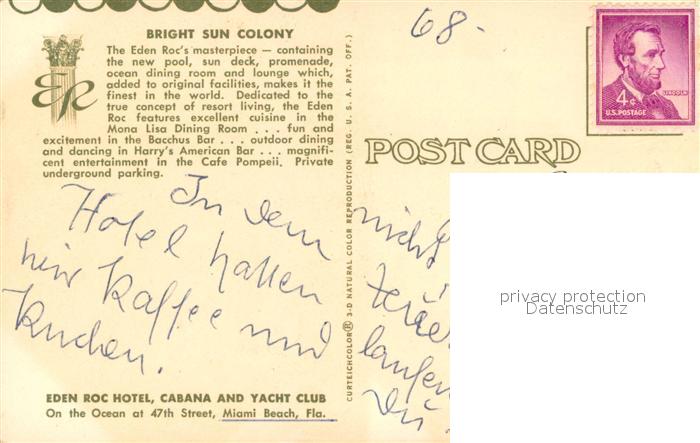 BRIGHT SUN COLONY
The Eden Roc's masterpiece — containing
the new pool, sun deck, promenade,
ocean dining room and lounge which,
added to original facilities, makes it the
finest in the world. Dedicated to the
true concept of resort living, the Eden
Roc features excellent cuisine in the
Mona Lisa Dining Room . . . fun and
excitement in the Bacchus Bar . . . outdoor dining
and dancing in Harry's American Bar . . . magnifi-
cent entertainment in the Cafe Pompeii. Private
underground parking.
ER
In dem
Hotel hatten
wir Kaffee und
Kuchen.
EDEN ROC HOTEL, CABANA AND YACHT CLUB
On the Ocean at 47th Street, Miami Beach, Fla.
CURTEICHCOLOR® 3-D NATURAL COLOR REPRODUCTION (REG. U. S. A. PAT. OFF.)
68-
4¢
LINCOLN
U.S. POSTAGE
POST CARD
nicht
laufen
privacy protection
Datenschutz